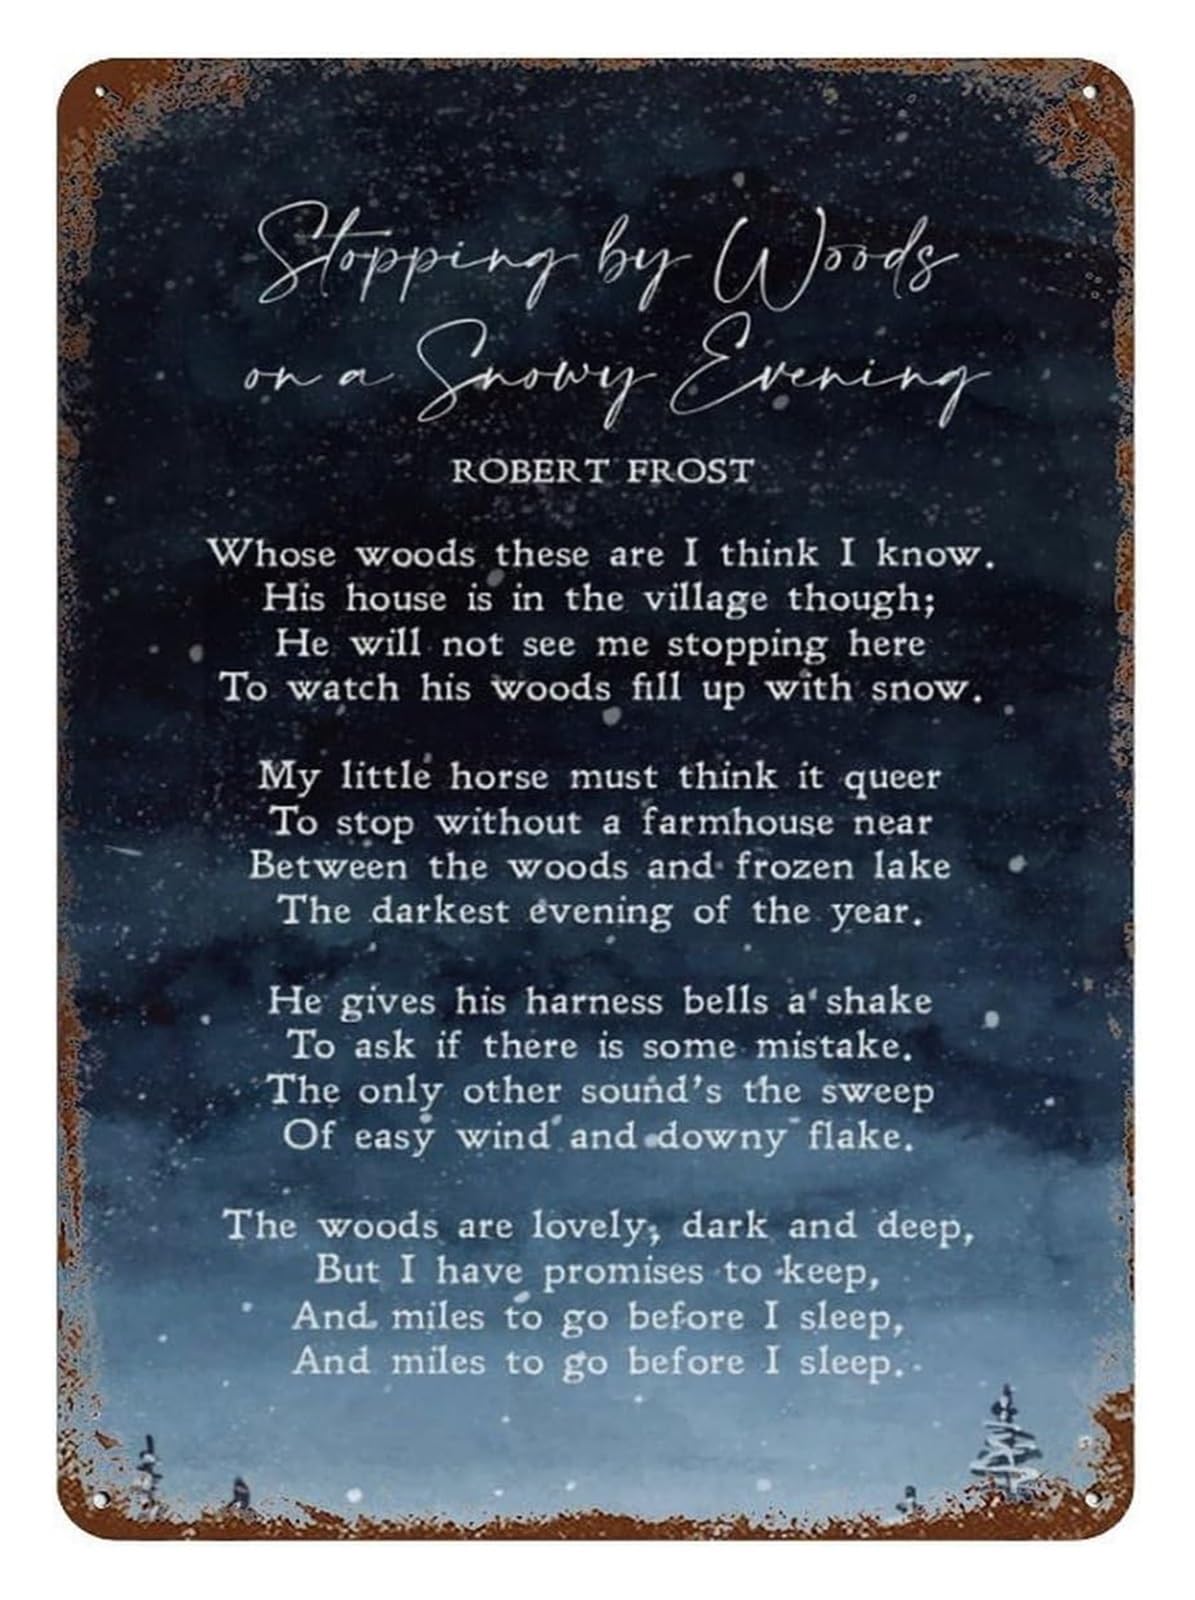 Stopping by Woods
on a Snowy Evening
ROBERT FROST
Whose woods these are I think I know.
His house is in the village though;
He will not see me stopping here
To watch his woods fill up with snow.
My little horse must think it queer
To stop without a farmhouse near
Between the woods and frozen lake
The darkest evening of the year.
He gives his harness bells a shake
To ask if there is some mistake.
The only other sound's the sweep
Of easy wind and downy flake.
The woods are lovely, dark and deep,
But I have promises to keep,
And miles to go before I sleep,
And miles to go before I sleep.